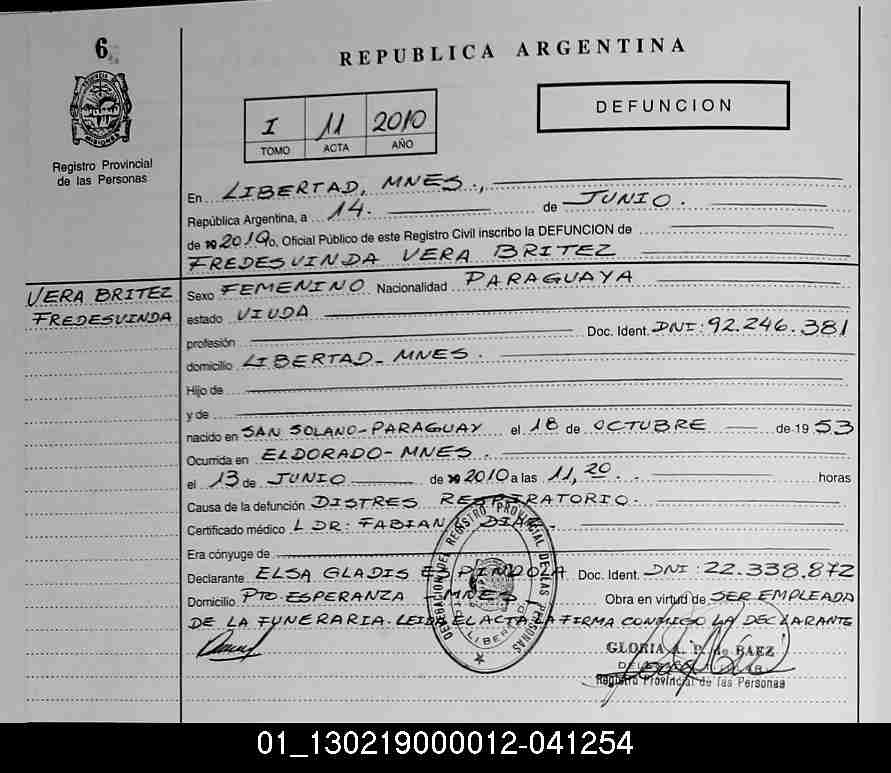 6
REPUBLICA ARGENTINA
DEFUNCION
I 11 2010
TOMO ACTA AÑO
MISIONES
Registro Provincial
de las Personas
En LIBERTAD, MNES.,
República Argentina, a 14. de JUNIO.
de 19 2010, Oficial Público de este Registro Civil inscribo la DEFUNCION de
FREDESVINDA VERA BRITEZ
VERA BRITEZ
FREDESVINDA
Sexo FEMENINO Nacionalidad PARAGUAYA
estado VIUDA
profesión Doc. Ident. DNI: 92.246.381
domicilio LIBERTAD-MNES.
Hijo de
y de
nacido en SAN SOLANO-PARAGUAY el 18 de OCTUBRE de 19 53
Ocurrida en ELDORADO-MNES.
el 13 de JUNIO de 19 2010 a las 11,20. horas
Causa de la defunción DISTRES RESPIRATORIO.
Certificado médico L DR: FABIAN DIAZ.
Era cónyuge de
Declarante ELSA GLADIS Doc. Ident. DNI: 22.338.872
Domicilio PTO. ESPERANZA MNES. Obra en virtud de SER EMPLEADA
DE LA FUNERARIA. LEIDA EL ACTA, LA FIRMA CONMIGO LA DECLARANTE
DELEGACION DEL REGISTRO PROVINCIAL DE LAS PERSONAS
LIBERTAD
GLORIA A. P. de BAEZ
Registro Provincial de las Personas
01_130219000012-041254